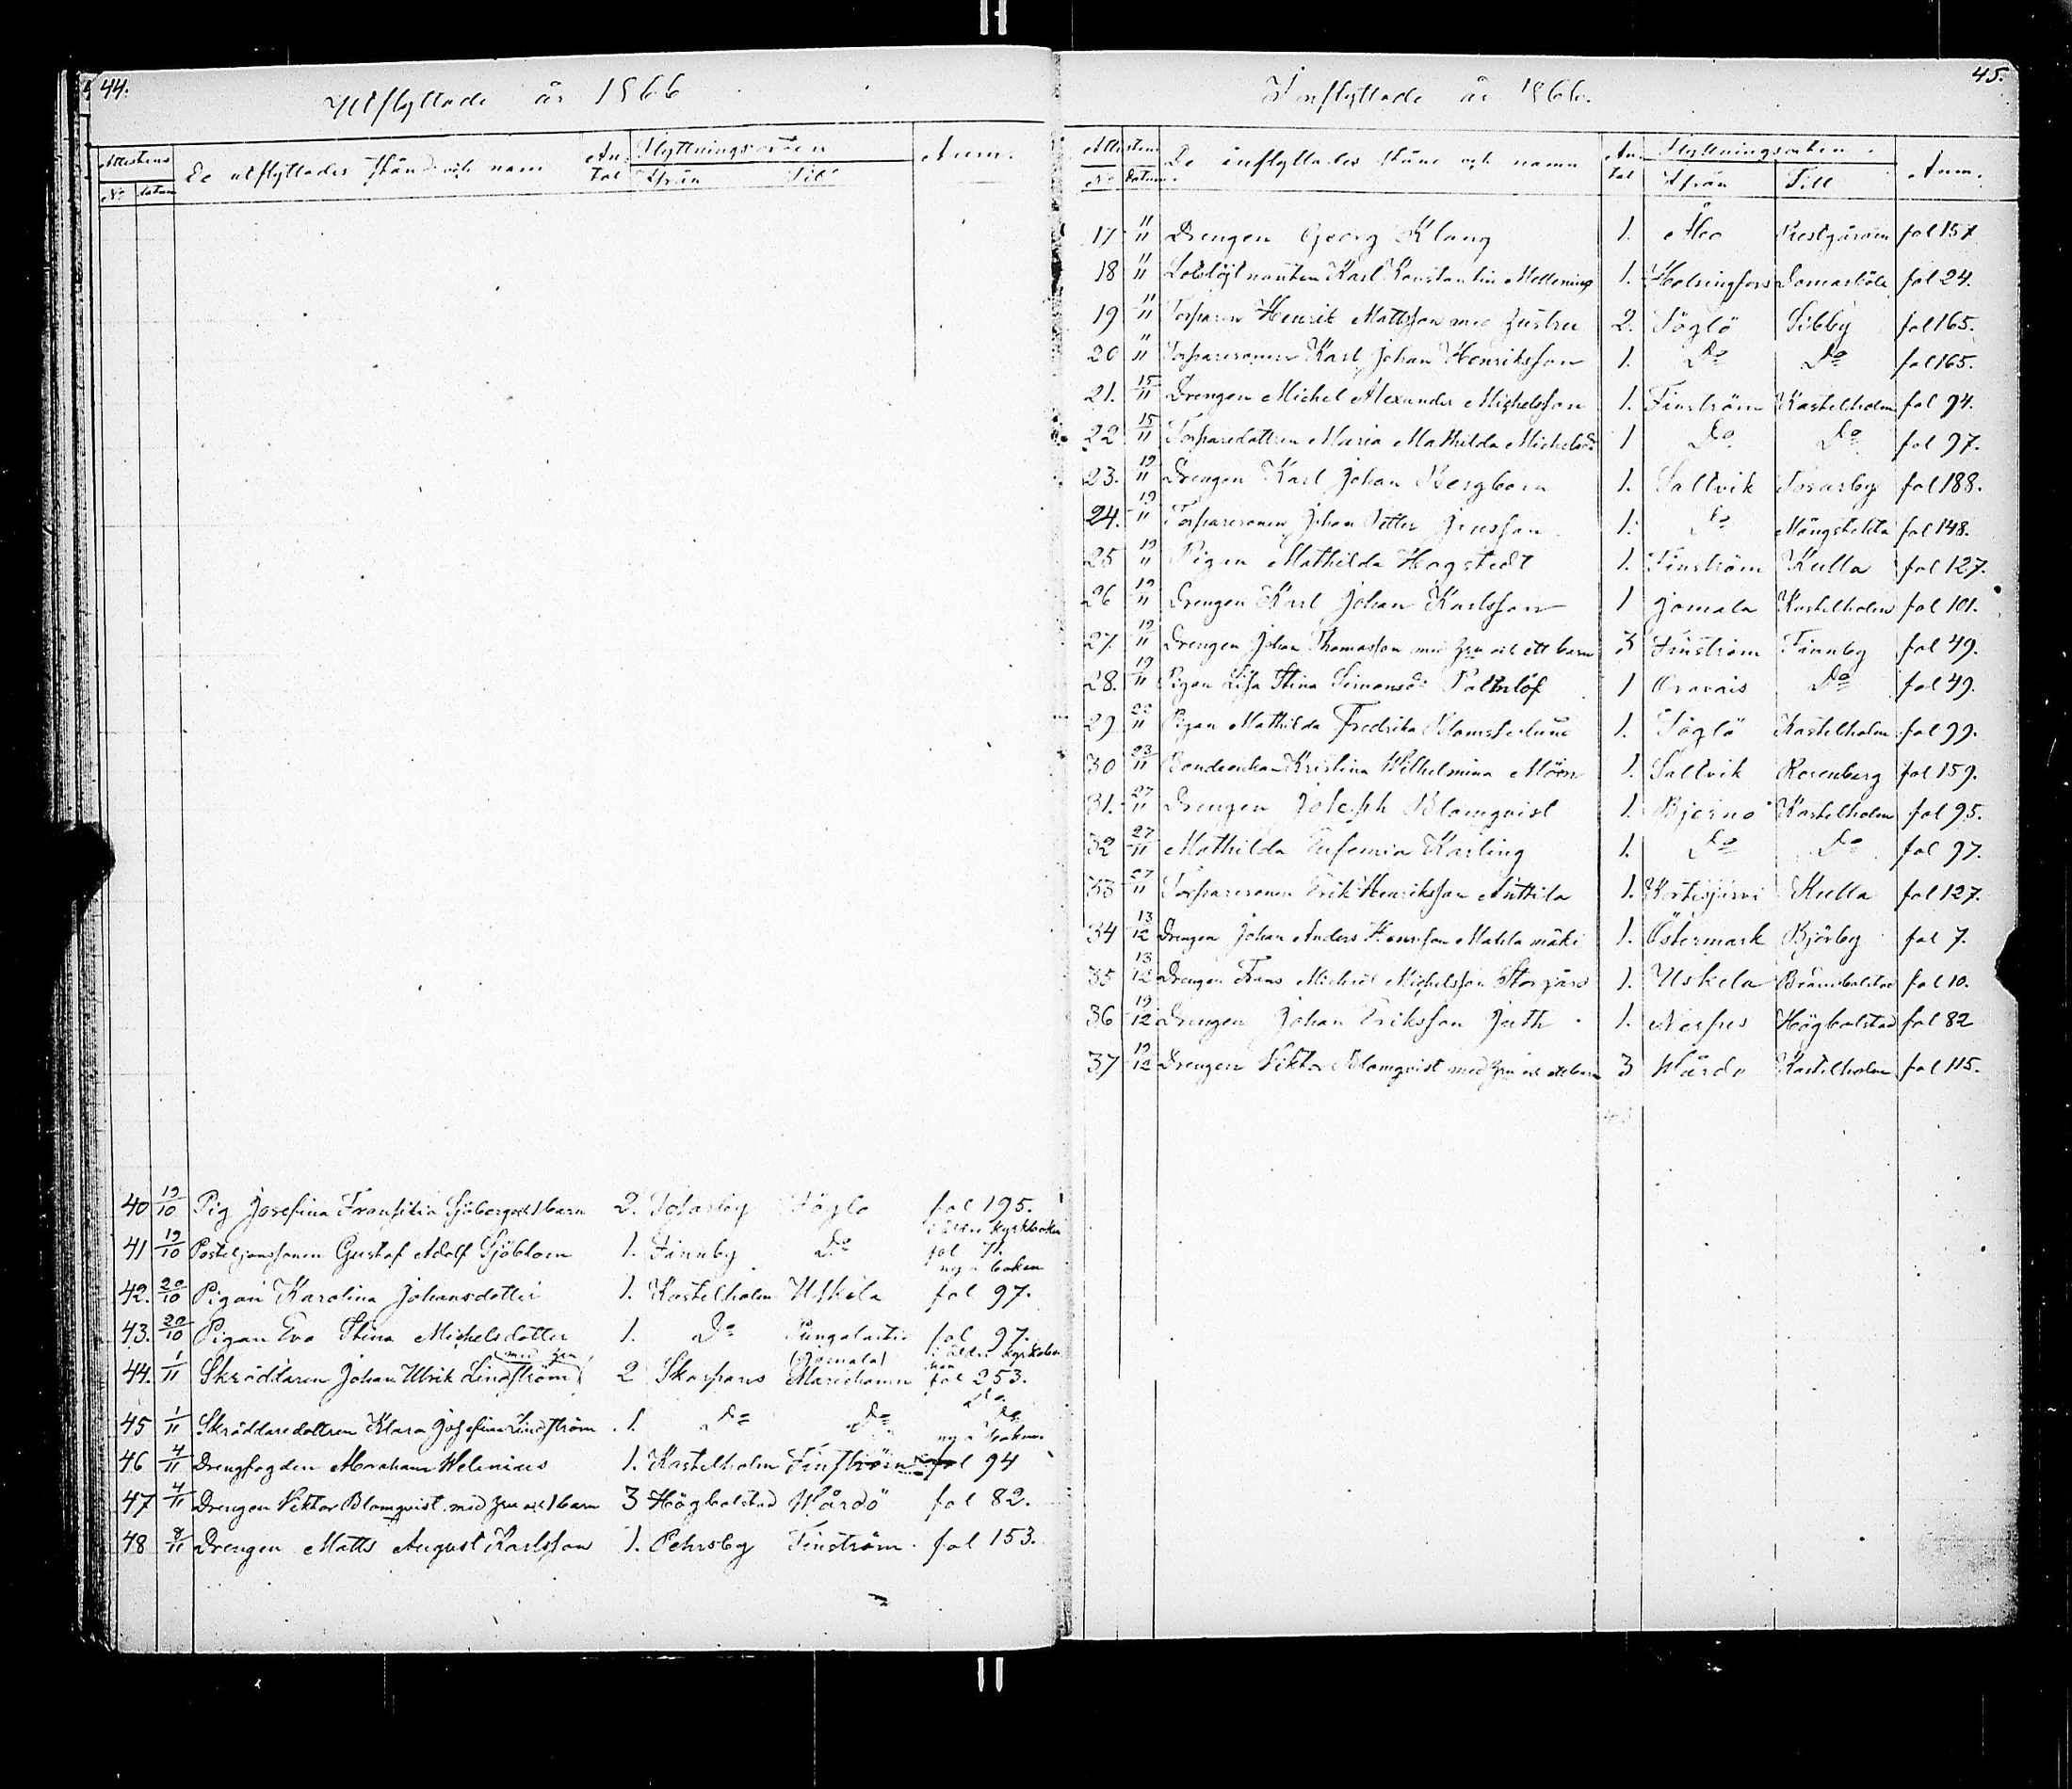 44.
Utflyttade år 1866
Attestens
No datum
De utflyttades stånd och namn
Antal
Flyttningsorten
Ifrån Till
Anm.
40 19/10 Pig Josefina Fransiska Sjöberg och 1 barn 2. Tosarby Föglö fol 195.
i äldre kyrkboken
41 19/10 Gustaf Adolf Sjöblom 1. Finnby Do fol 71.
nya boken
42. 20/10 Pigan Karolina Johansdotter 1. Kastelholm Uskela fol 97.
43. 20/10 Pigan Eva Stina Michelsdotter 1. Do fol 97.
med hru (Jomala) i äldre kyrkobo
44. 1/11 Skräddaren Johan Ulrik Lindström 2 Skarpans Mariehamn fol 253.
Do
45 1/11 Skräddaredottren Klara Josefina Lindström 1. Do Do Do
nya boken
46 4/11 Drengfogden Abraham Helenius 1. Kastelholm Finström fol 94
47 4/11 Drengen Viktor Blomqvist med hru och 1 barn 3 Högbolstad Wårdö fol 82.
48 8/11 Drengen Matts August Karlsson 1. Pehrsby Finström fol 153.
45.
Inflyttade år 1866.
Attestens
No Datum
De inflyttades stånd och namn
Antal
Flyttningsorten
Ifrån Till
Anm.
17 11/11 Drengen Georg Klang 1. Åbo Prestgården fol 157
18 11/11 Karl Konstantin Mellening 1. Helsingfors Domarböle fol 24.
19 11/11 Torparen Henrik Mattsson med hustru 2. Föglö Sibby fol 165.
20 11/11 Torparesonen Karl Johan Henriksson 1. Do Do fol 165.
21. 15/11 Drengen Michel Alexander Michelsson 1. Finström Kastelholm fol 94.
22 15/11 Torparedottren Maria Mathilda Michelsdr 1 Do Do fol 97.
23. 19/11 Drengen Karl Johan Bergbom 1. Saltvik Tosarby fol 188.
24. 19/11 Torparesonen Johan Petter Jansson 1. Do Mångstekta fol 148.
25 19/11 Pigan Mathilda Hagstedt 1. Finström Kulla fol 127.
26 19/11 Drengen Karl Johan Karlsson 1 Jomala Kastelholm fol 101.
27. 19/11 Drengen Johan Thomasson med hru och ett barn 3 Finström Finnby fol 49.
28. 19/11 Pigan Lisa Stina Simonsdr 1 Oravais Do fol 49.
29 22/11 Pigan Mathilda Fredrika Blomsterlund 1. Föglö Kastelholm fol 99.
30 23/11 Bondeenkan Kristina Wilhelmina Mörn 1. Saltvik Rosenberg fol 159.
31. 27/11 Drengen Joseph Blomqvist 1. Bjernå Kastelholm fol 95.
32 27/11 Mathilda Eufemia Karling 1. Do Do fol 97.
33 27/11 Torparesonen Erik Henriksson Anttila 1. Kortesjärvi Kulla fol 127.
34 13/12 Drengen Johan Anders Henrsson Mattlamäki 1. Östermark Björby fol 7.
35 13/12 Drengen Frans Michel Michelsson Storgård 1. Uskela Brännbolstad fol 10.
36 19/12 Drengen Johan Eriksson Juth 1. Nerpes Högbolstad fol 82
37 19/12 Drengen Viktor Blomqvist med hru och ett barn 3 Wårdö Kastelholm fol 115.